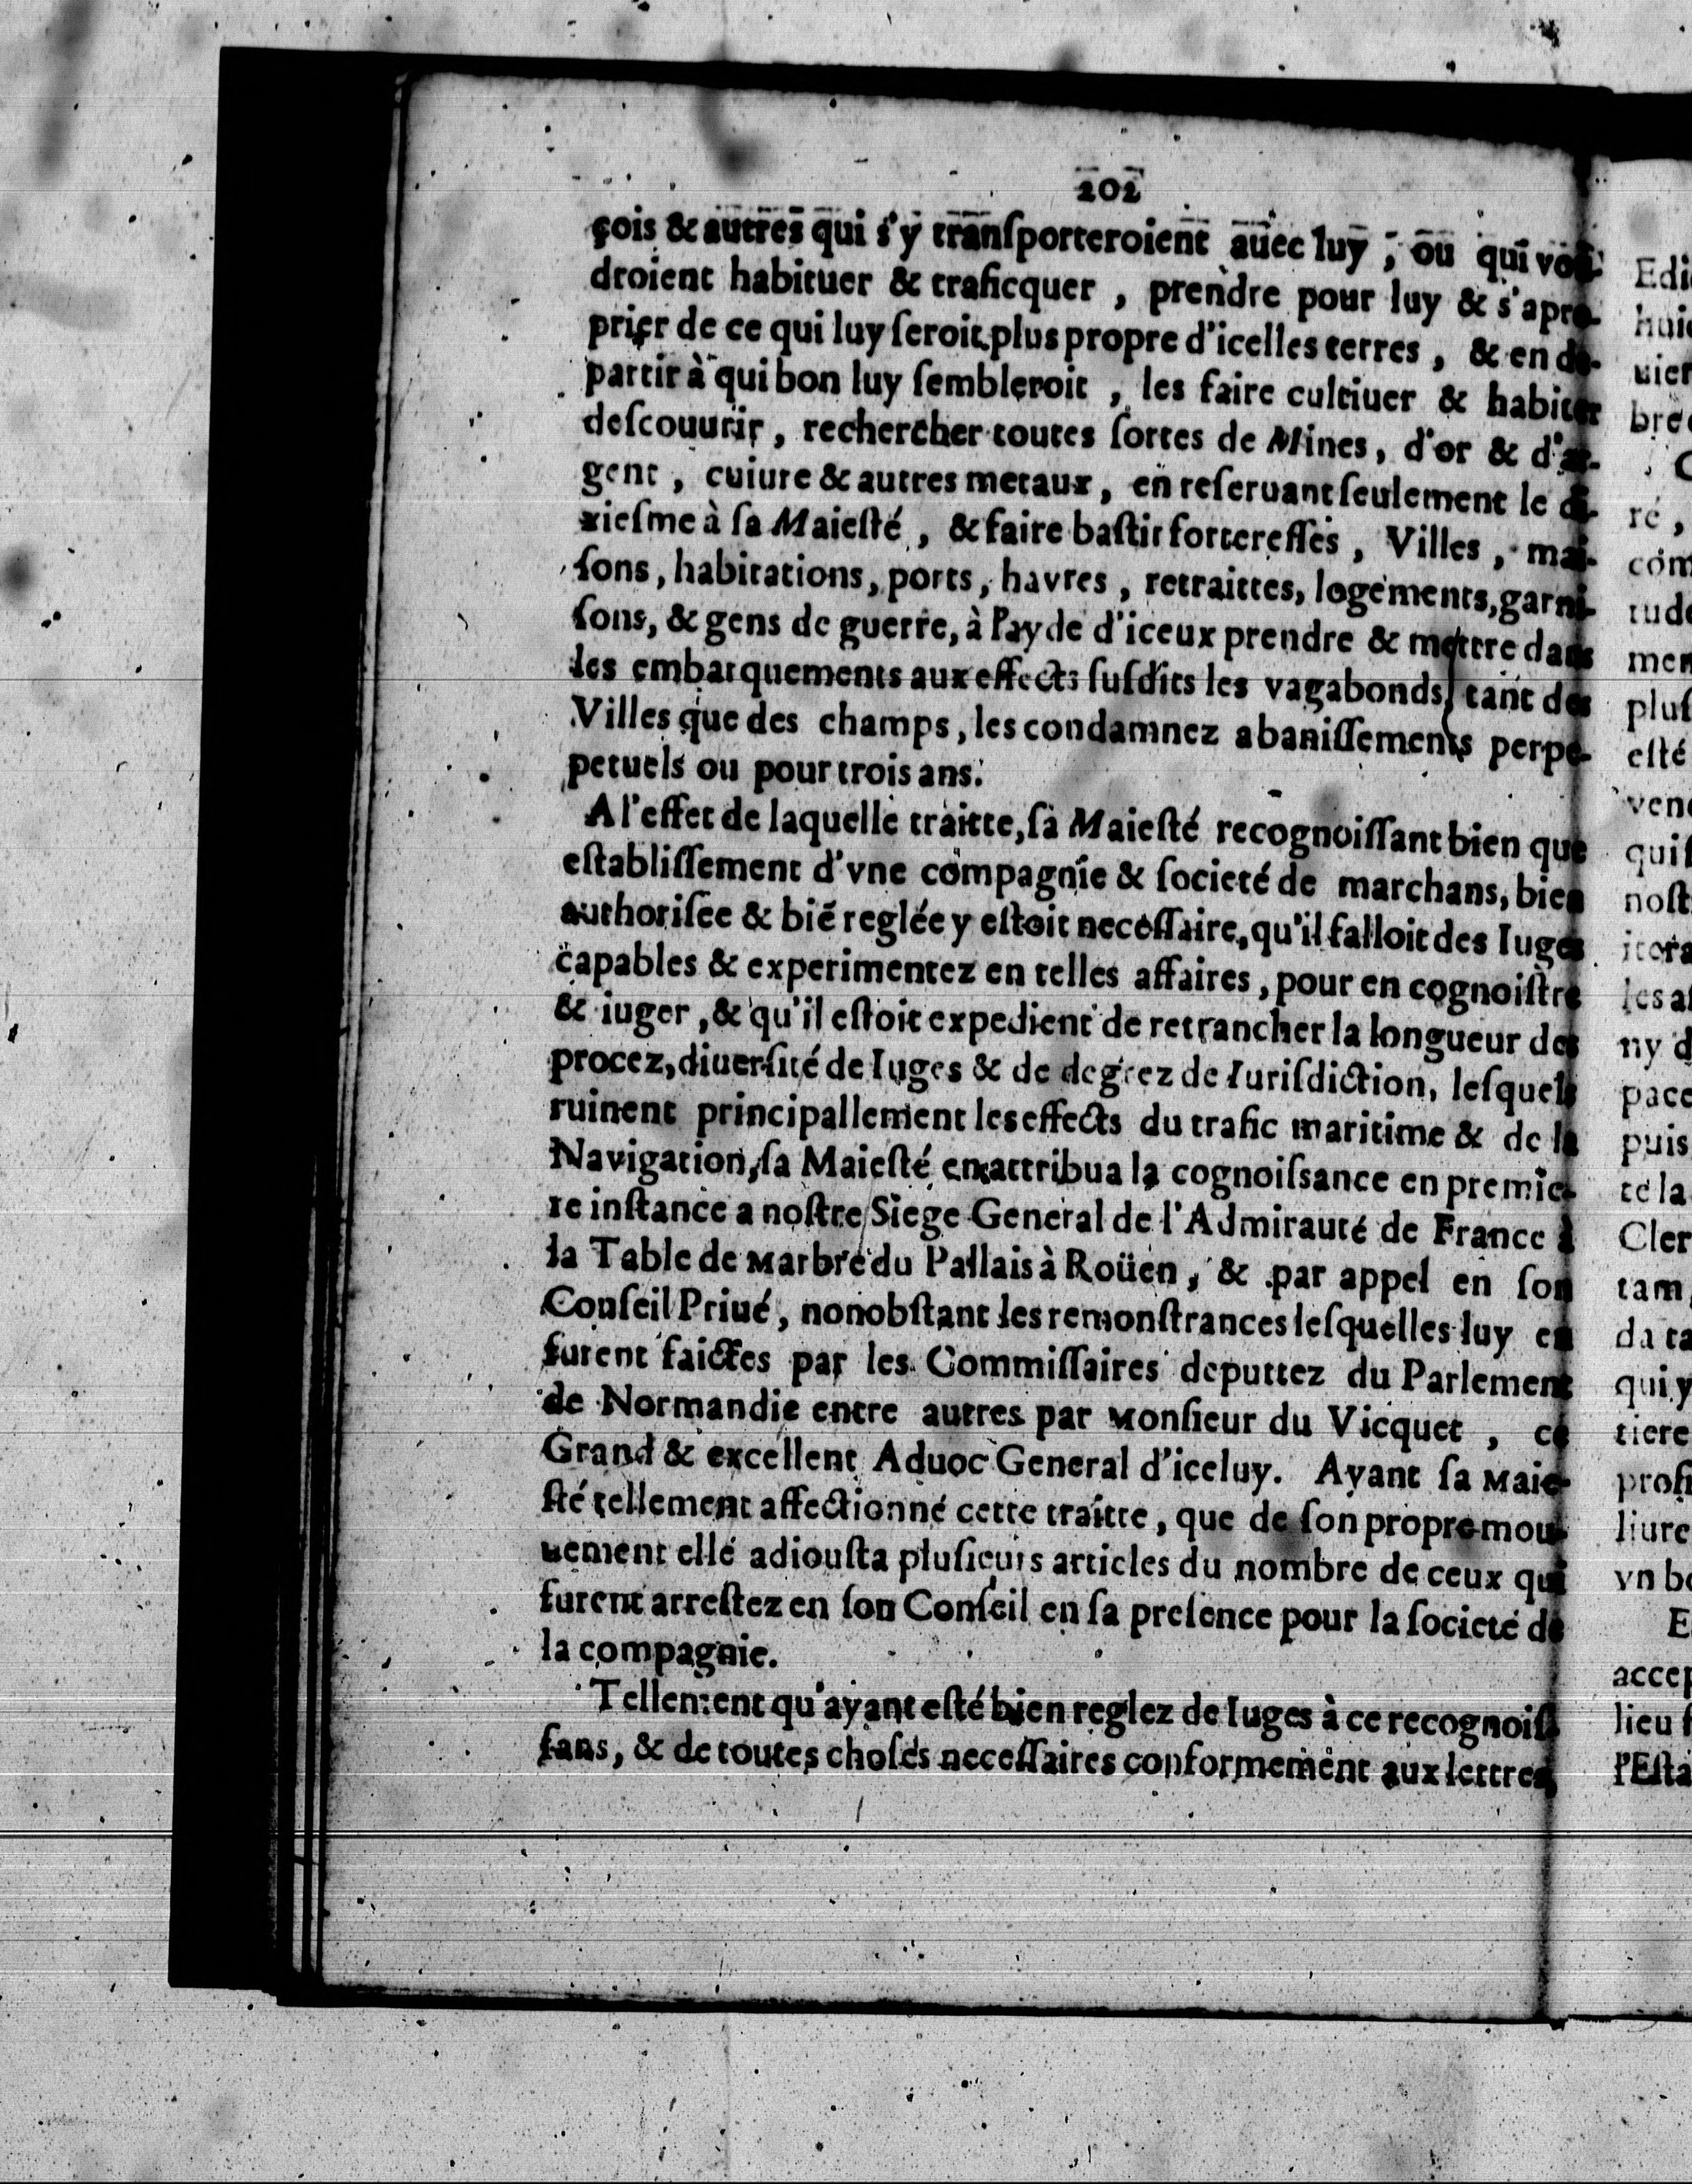 202
çois & autres qui s'y tranſporteroient auec luy, ou qui vou-
droient habituer & traficquer, prendre pour luy & s'apro-
prier de ce qui luy ſeroit plus propre d'icelles terres, & en de-
partir à qui bon luy ſembleroit, les faire cultiuer & habiter
deſcouurir, rechercher toutes ſortes de Mines, d'or & d'ar-
gent, cuiure & autres metaux, en reſeruant ſeulement le di-
xieſme à ſa Maieſté, & faire baſtir fortereſſes, Villes, mai-
ſons, habitations, ports, havres, retraittes, logements, garni-
ſons, & gens de guerre, à l'ayde d'iceux prendre & mettre dans
les embarquements aux effects ſuſdits les vagabonds, tant des
Villes que des champs, les condamnez a baniſſements perpe-
petuels ou pour trois ans.
A l'effet de laquelle traitte, ſa Maieſté recognoiſſant bien que
eſtabliſſement d'vne compagnie & ſocieté de marchans, bien
authoriſee & biē reglée y eſtoit neceſſaire, qu'il falloit des Iuges
capables & experimentez en telles affaires, pour en cognoiſtre
& iuger, & qu'il eſtoit expedient de retrancher la longueur des
procez, diuerſité de Iuges & de degrez de Iuriſdiction, leſquels
ruinent principallement les effects du trafic maritime & de la
Navigation, ſa Maieſté en attribua la cognoiſsance en premie-
re inſtance a noſtre Siege General de l'Admirauté de France à
la Table de Marbre du Pallais à Roüen, & par appel en ſon
Conſeil Priué, nonobſtant les remonſtrances leſquelles luy en
furent faictes par les Commiſſaires deputtez du Parlement
de Normandie entre autres par Monſieur du Vicquet, ce
Grand & excellent Aduoc General d'iceluy. Ayant ſa Maie-
ſté tellement affectionné cette traitte, que de ſon propre mou-
uement elle adiouſta pluſieurs articles du nombre de ceux qui
furent arreſtez en ſon Conſeil en ſa preſence pour la ſocieté de
la compagnie.
Tellement qu'ayant eſté bien reglez de Iuges à ce recognoiſ-
ſans, & de toutes choſes neceſſaires conformement aux lettres